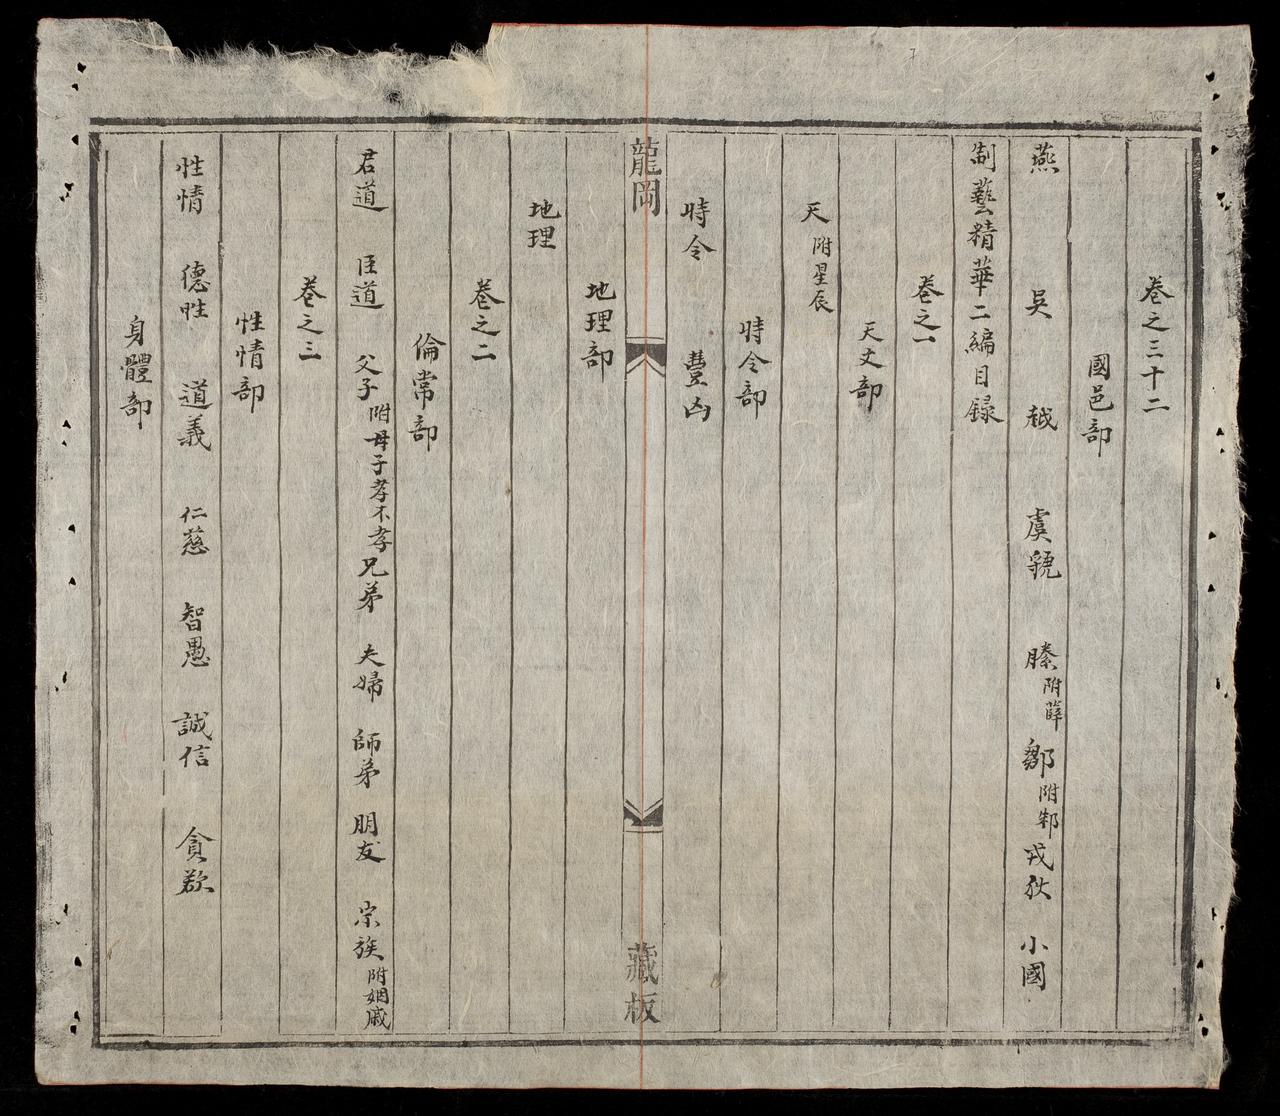 卷之三十二
國邑部
燕 吳 越 虞虢 滕附薛 鄒附邾 戎狄 小國
制藝精華二編目録
卷之一
天文部
天附星辰
時令部
時令 豐凶
龍岡 藏板
地理部
地理
卷之二
倫常部
君道 臣道 父子附母子孝不孝 兄弟 夫婦 師弟 朋友 宗族附姻戚
卷之三
性情部
性情 德性 道義 仁慈 智愚 誠信 貪欲
身體部